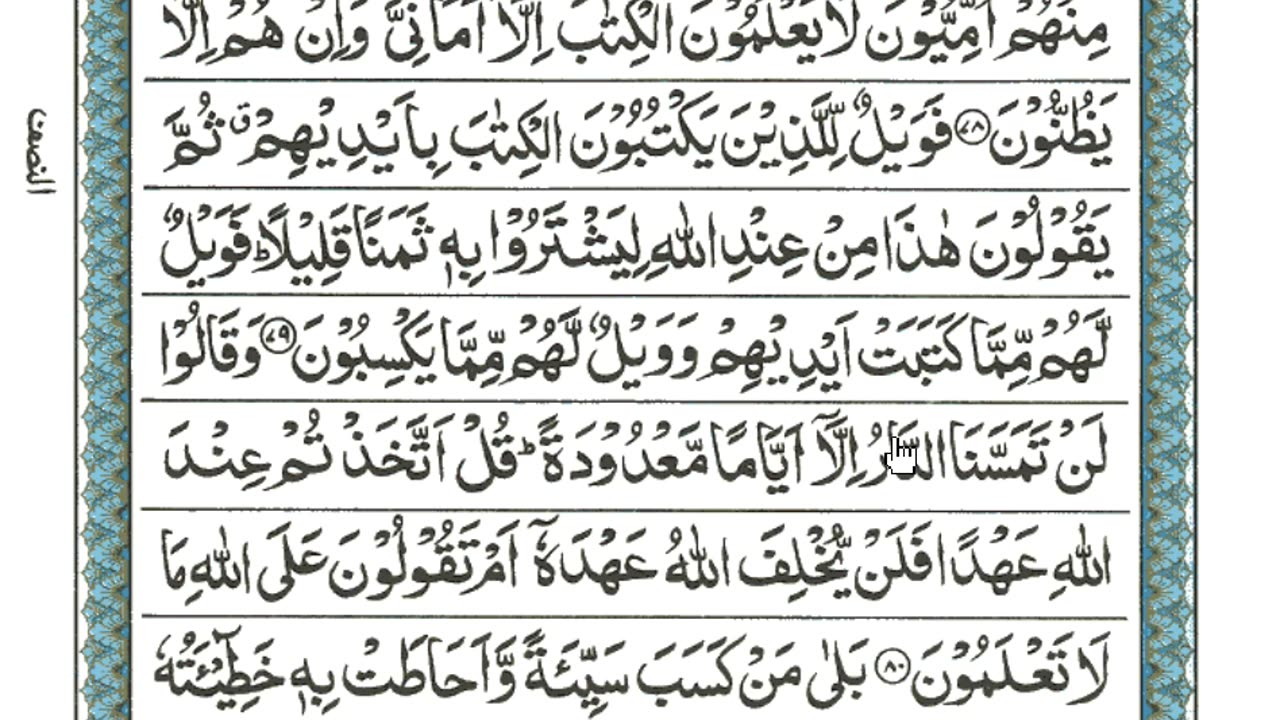 مِنْهُمْ اُمِّيُّوْنَ لَا يَعْلَمُوْنَ الْكِتٰبَ اِلَّاۤ اَمَانِىَّ وَاِنْ هُمْ اِلَّا
يَظُنُّوْنَ ﴿۷۸﴾ فَوَيْلٌ لِّلَّذِيْنَ يَكْتُبُوْنَ الْكِتٰبَ بِاَيْدِيْهِمْ ق ثُمَّ
النصف
يَقُوْلُوْنَ هٰذَا مِنْ عِنْدِ اللّٰهِ لِيَشْتَرُوْا بِهٖ ثَمَنًا قَلِيْلًا ؕ فَوَيْلٌ
لَّهُمْ مِّمَّا كَتَبَتْ اَيْدِيْهِمْ وَوَيْلٌ لَّهُمْ مِّمَّا يَكْسِبُوْنَ ﴿۷۹﴾ وَقَالُوْا
لَنْ تَمَسَّنَا النَّارُ اِلَّاۤ اَيَّامًا مَّعْدُوْدَةً ؕ قُلْ اَتَّخَذْتُمْ عِنْدَ
اللّٰهِ عَهْدًا فَلَنْ يُّخْلِفَ اللّٰهُ عَهْدَهٗۤ اَمْ تَقُوْلُوْنَ عَلَى اللّٰهِ مَا
لَا تَعْلَمُوْنَ ﴿۸۰﴾ بَلٰى مَنْ كَسَبَ سَيِّئَةً وَّاَحَاطَتْ بِهٖ خَطِيْٓئَتُهٗ